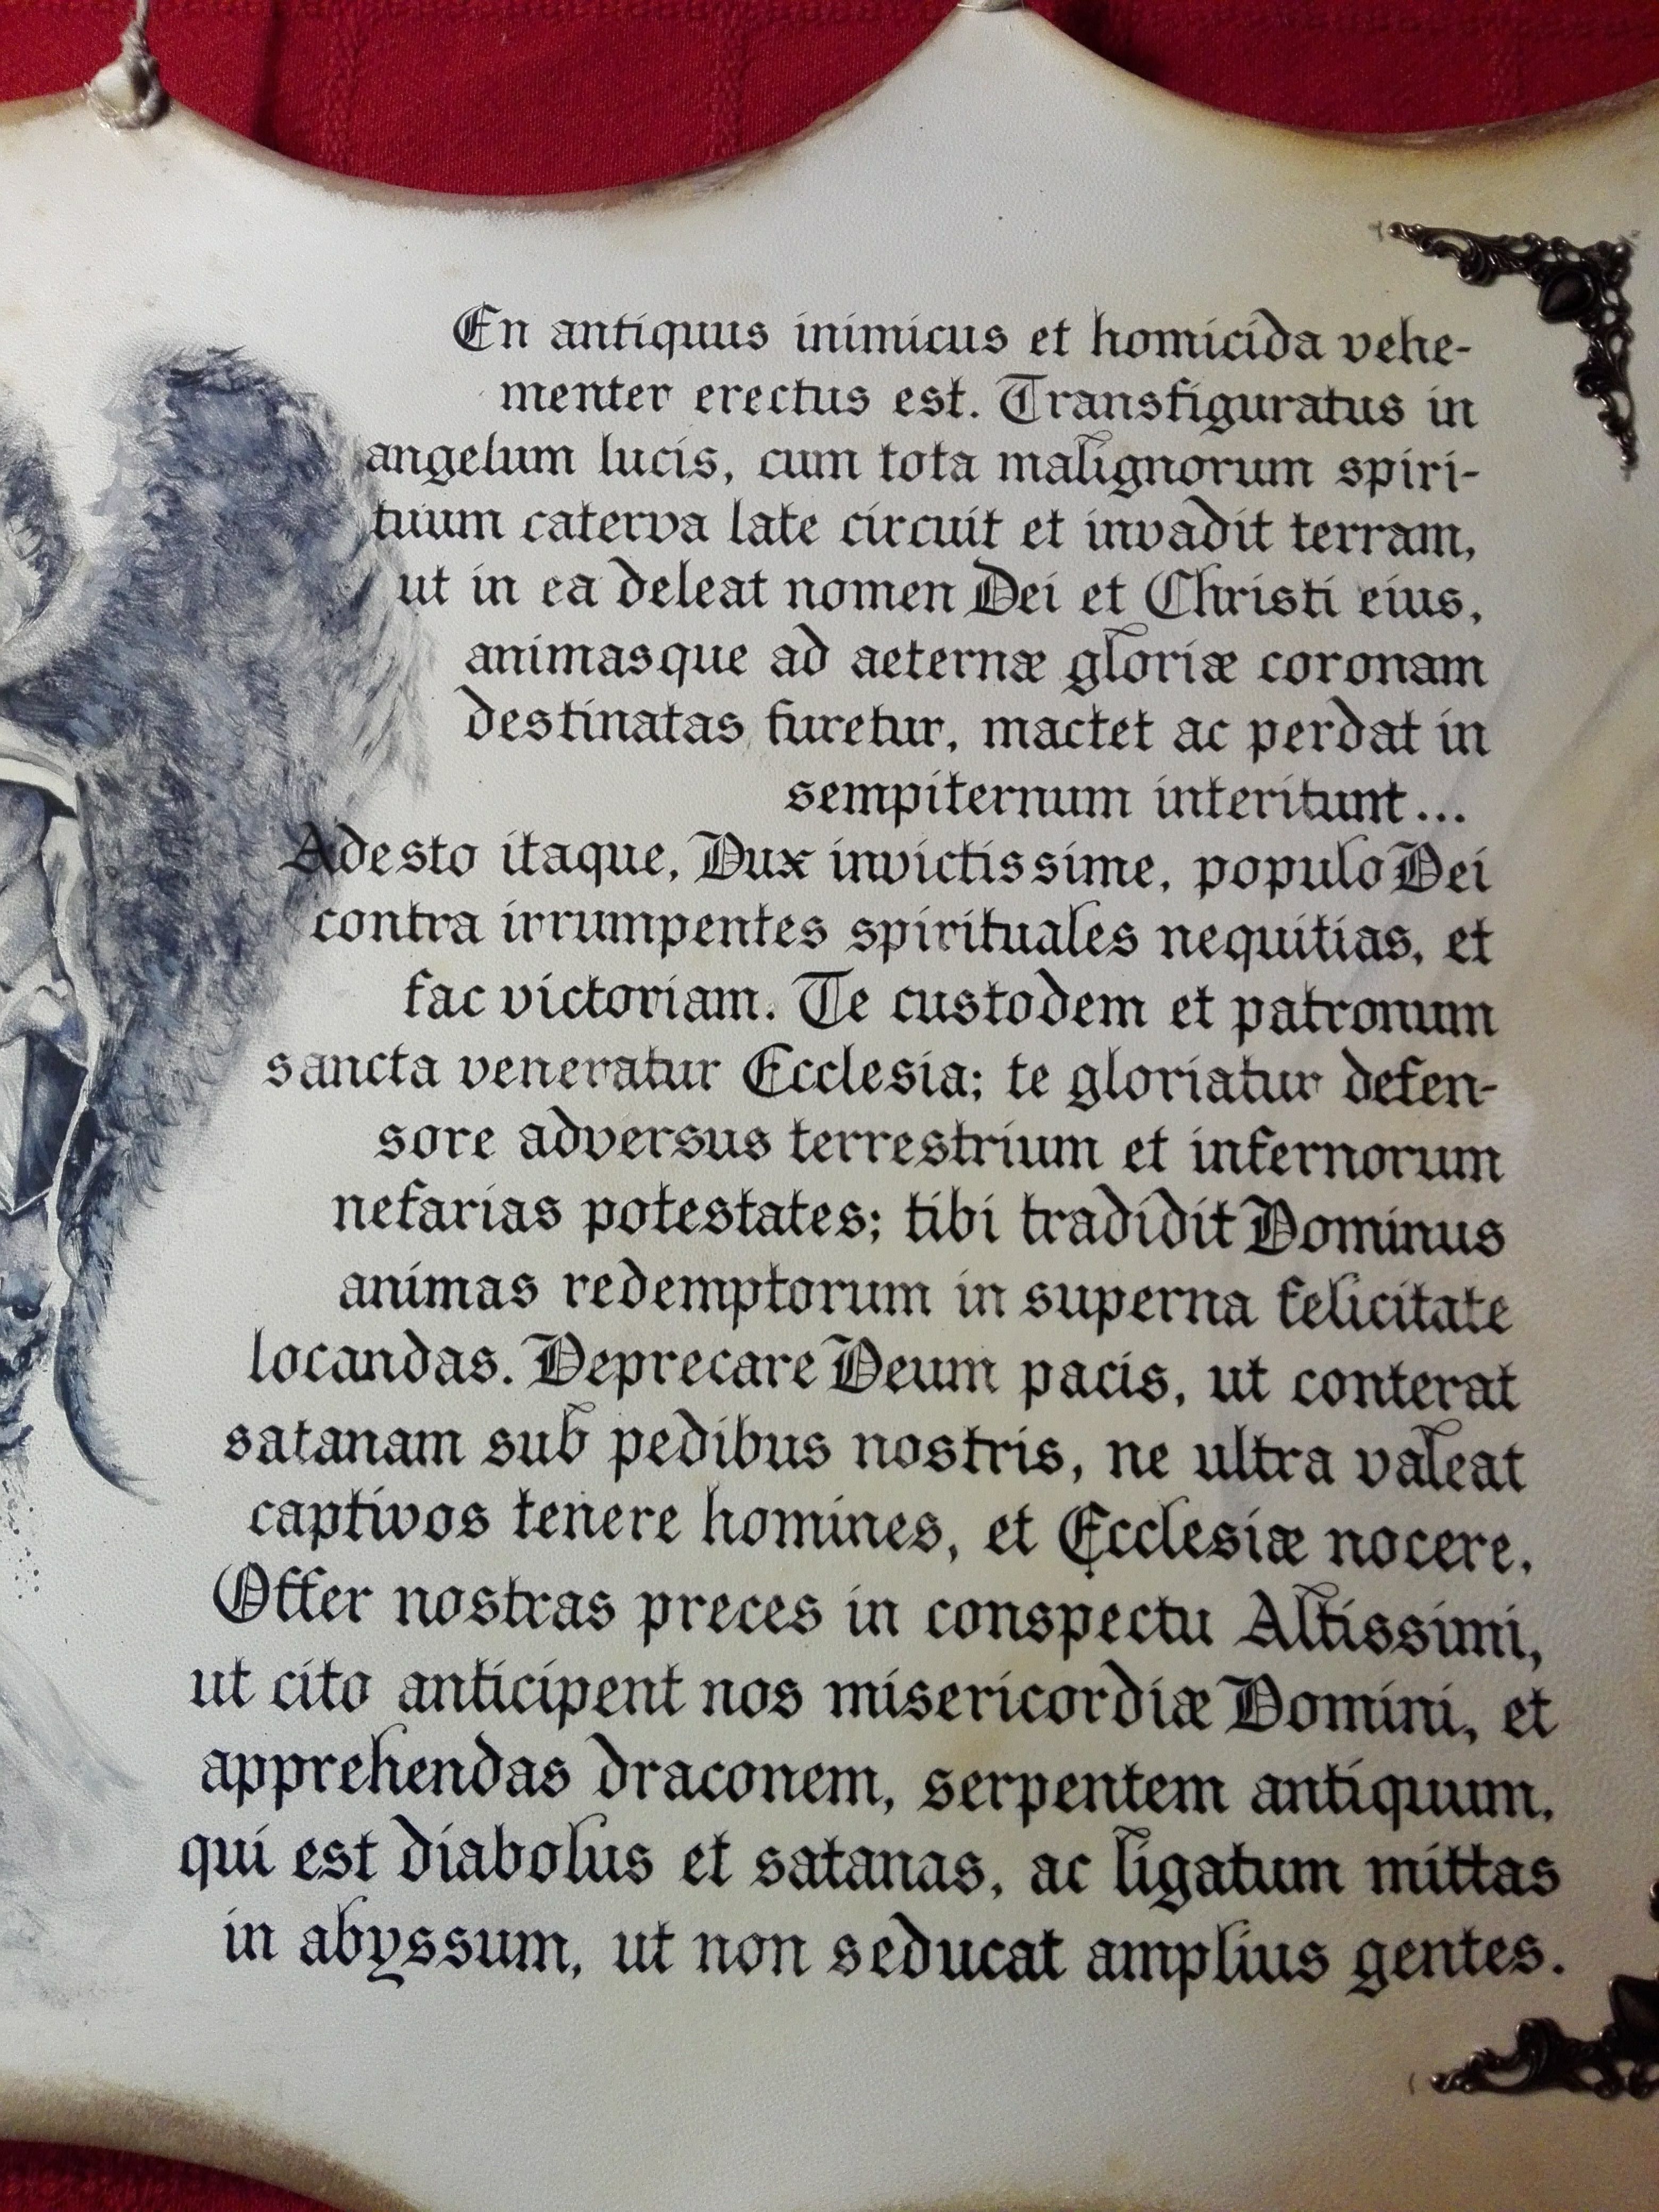 En antiquus inimicus et homicida vehe-
menter erectus est. Transfiguratus in
angelum lucis, cum tota malignorum spiri-
tuum caterva late circuit et invadit terram,
ut in ea deleat nomen Dei et Christi eius,
animasque ad aeternæ gloriæ coronam
destinatas furetur, mactet ac perdat in
sempiternum interitunt...
Adesto itaque, Dux invictissime, populo Dei
contra irrumpentes spirituales nequitias, et
fac victoriam. Te custodem et patronum
sancta veneratur Ecclesia; te gloriatur defen-
sore adversus terrestrium et infernorum
nefarias potestates; tibi tradidit Dominus
animas redemptorum in superna felicitate
locandas. Deprecare Deum pacis, ut conterat
satanam sub pedibus nostris, ne ultra valeat
captivos tenere homines, et Ecclesiæ nocere.
Offer nostras preces in conspectu Altissimi,
ut cito anticipent nos misericordiæ Domini, et
apprehendas draconem, serpentem antiquum,
qui est diabolus et satanas, ac ligatum mittas
in abyssum, ut non seducat amplius gentes.